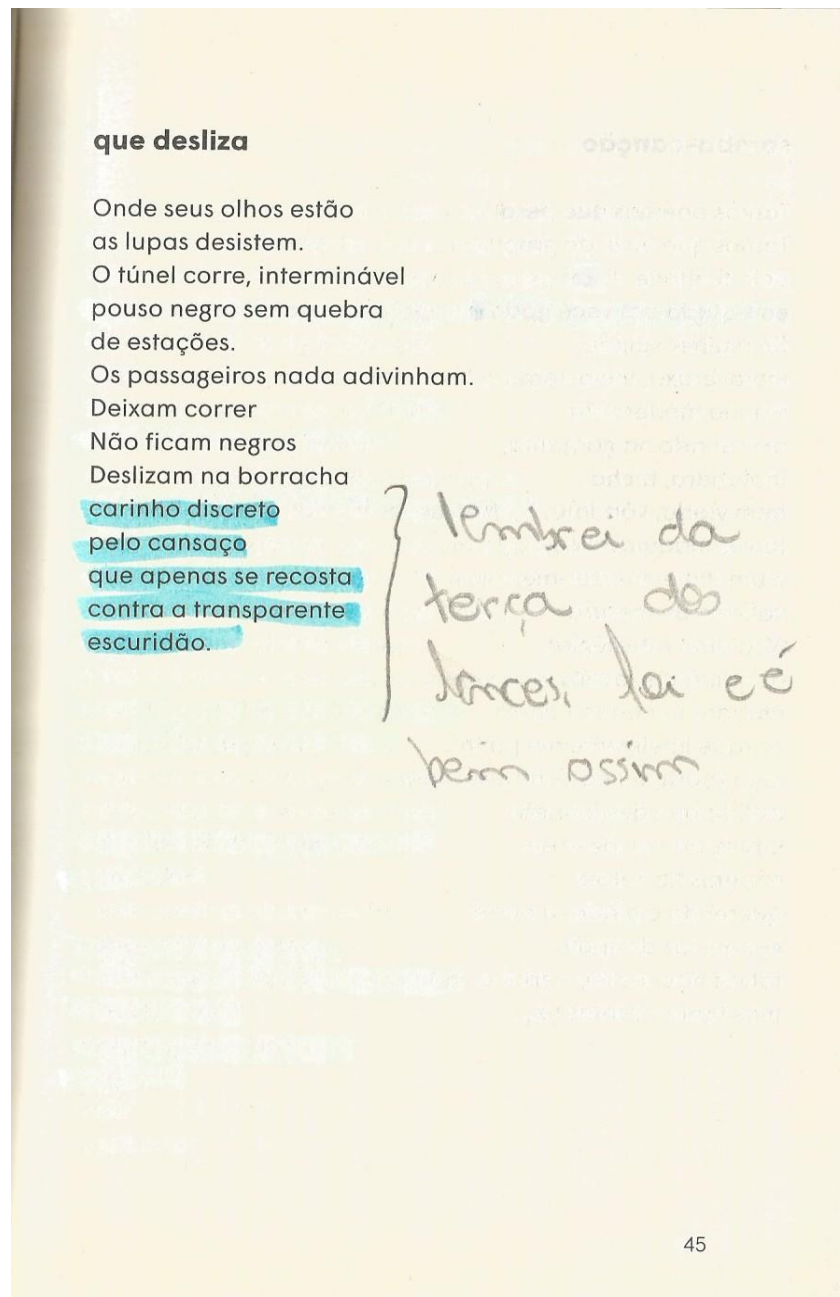 que desliza
Onde seus olhos estão
as lupas desistem.
O túnel corre, interminável
pouso negro sem quebra
de estações.
Os passageiros nada adivinham.
Deixam correr
Não ficam negros
Deslizam na borracha
carinho discreto
pelo cansaço
que apenas se recosta
contra a transparente
escuridão.
lembrei da
terça dos
foi e é
bem assim
45